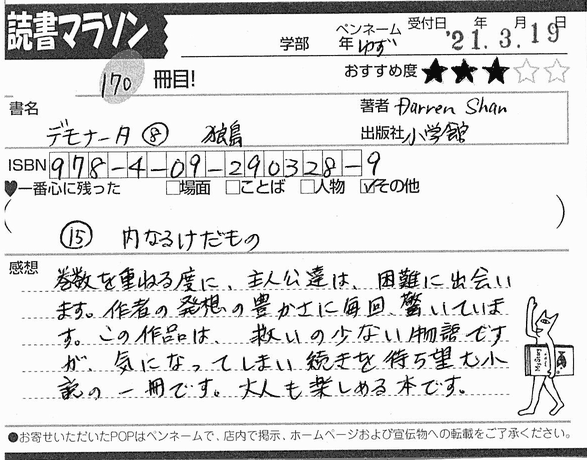 読書マラソン
学部 年 ペンネーム ゆず 受付日 '21年.3月.19日
170 冊目! おすすめ度 ★★★☆☆
書名 デモナータ⑧ 狼島
著者 Darren Shan
出版社 小学館
ISBN 978-4-09-290328-9
♥一番心に残った □場面 □ことば □人物 ☑その他
( ⑮ 内なるけだもの )
感想
巻数を重ねる度に、主人公達は、困難に出会い
ます。作者の発想の豊かさに毎回、驚いていま
す。この作品は、救いの少ない物語です
が、気になってしまい続きを待ち望む小
説の一冊です。大人も楽しめる本です。
●お寄せいただいたPOPはペンネームで、店内で掲示、ホームページおよび宣伝物への転載をご了承ください。